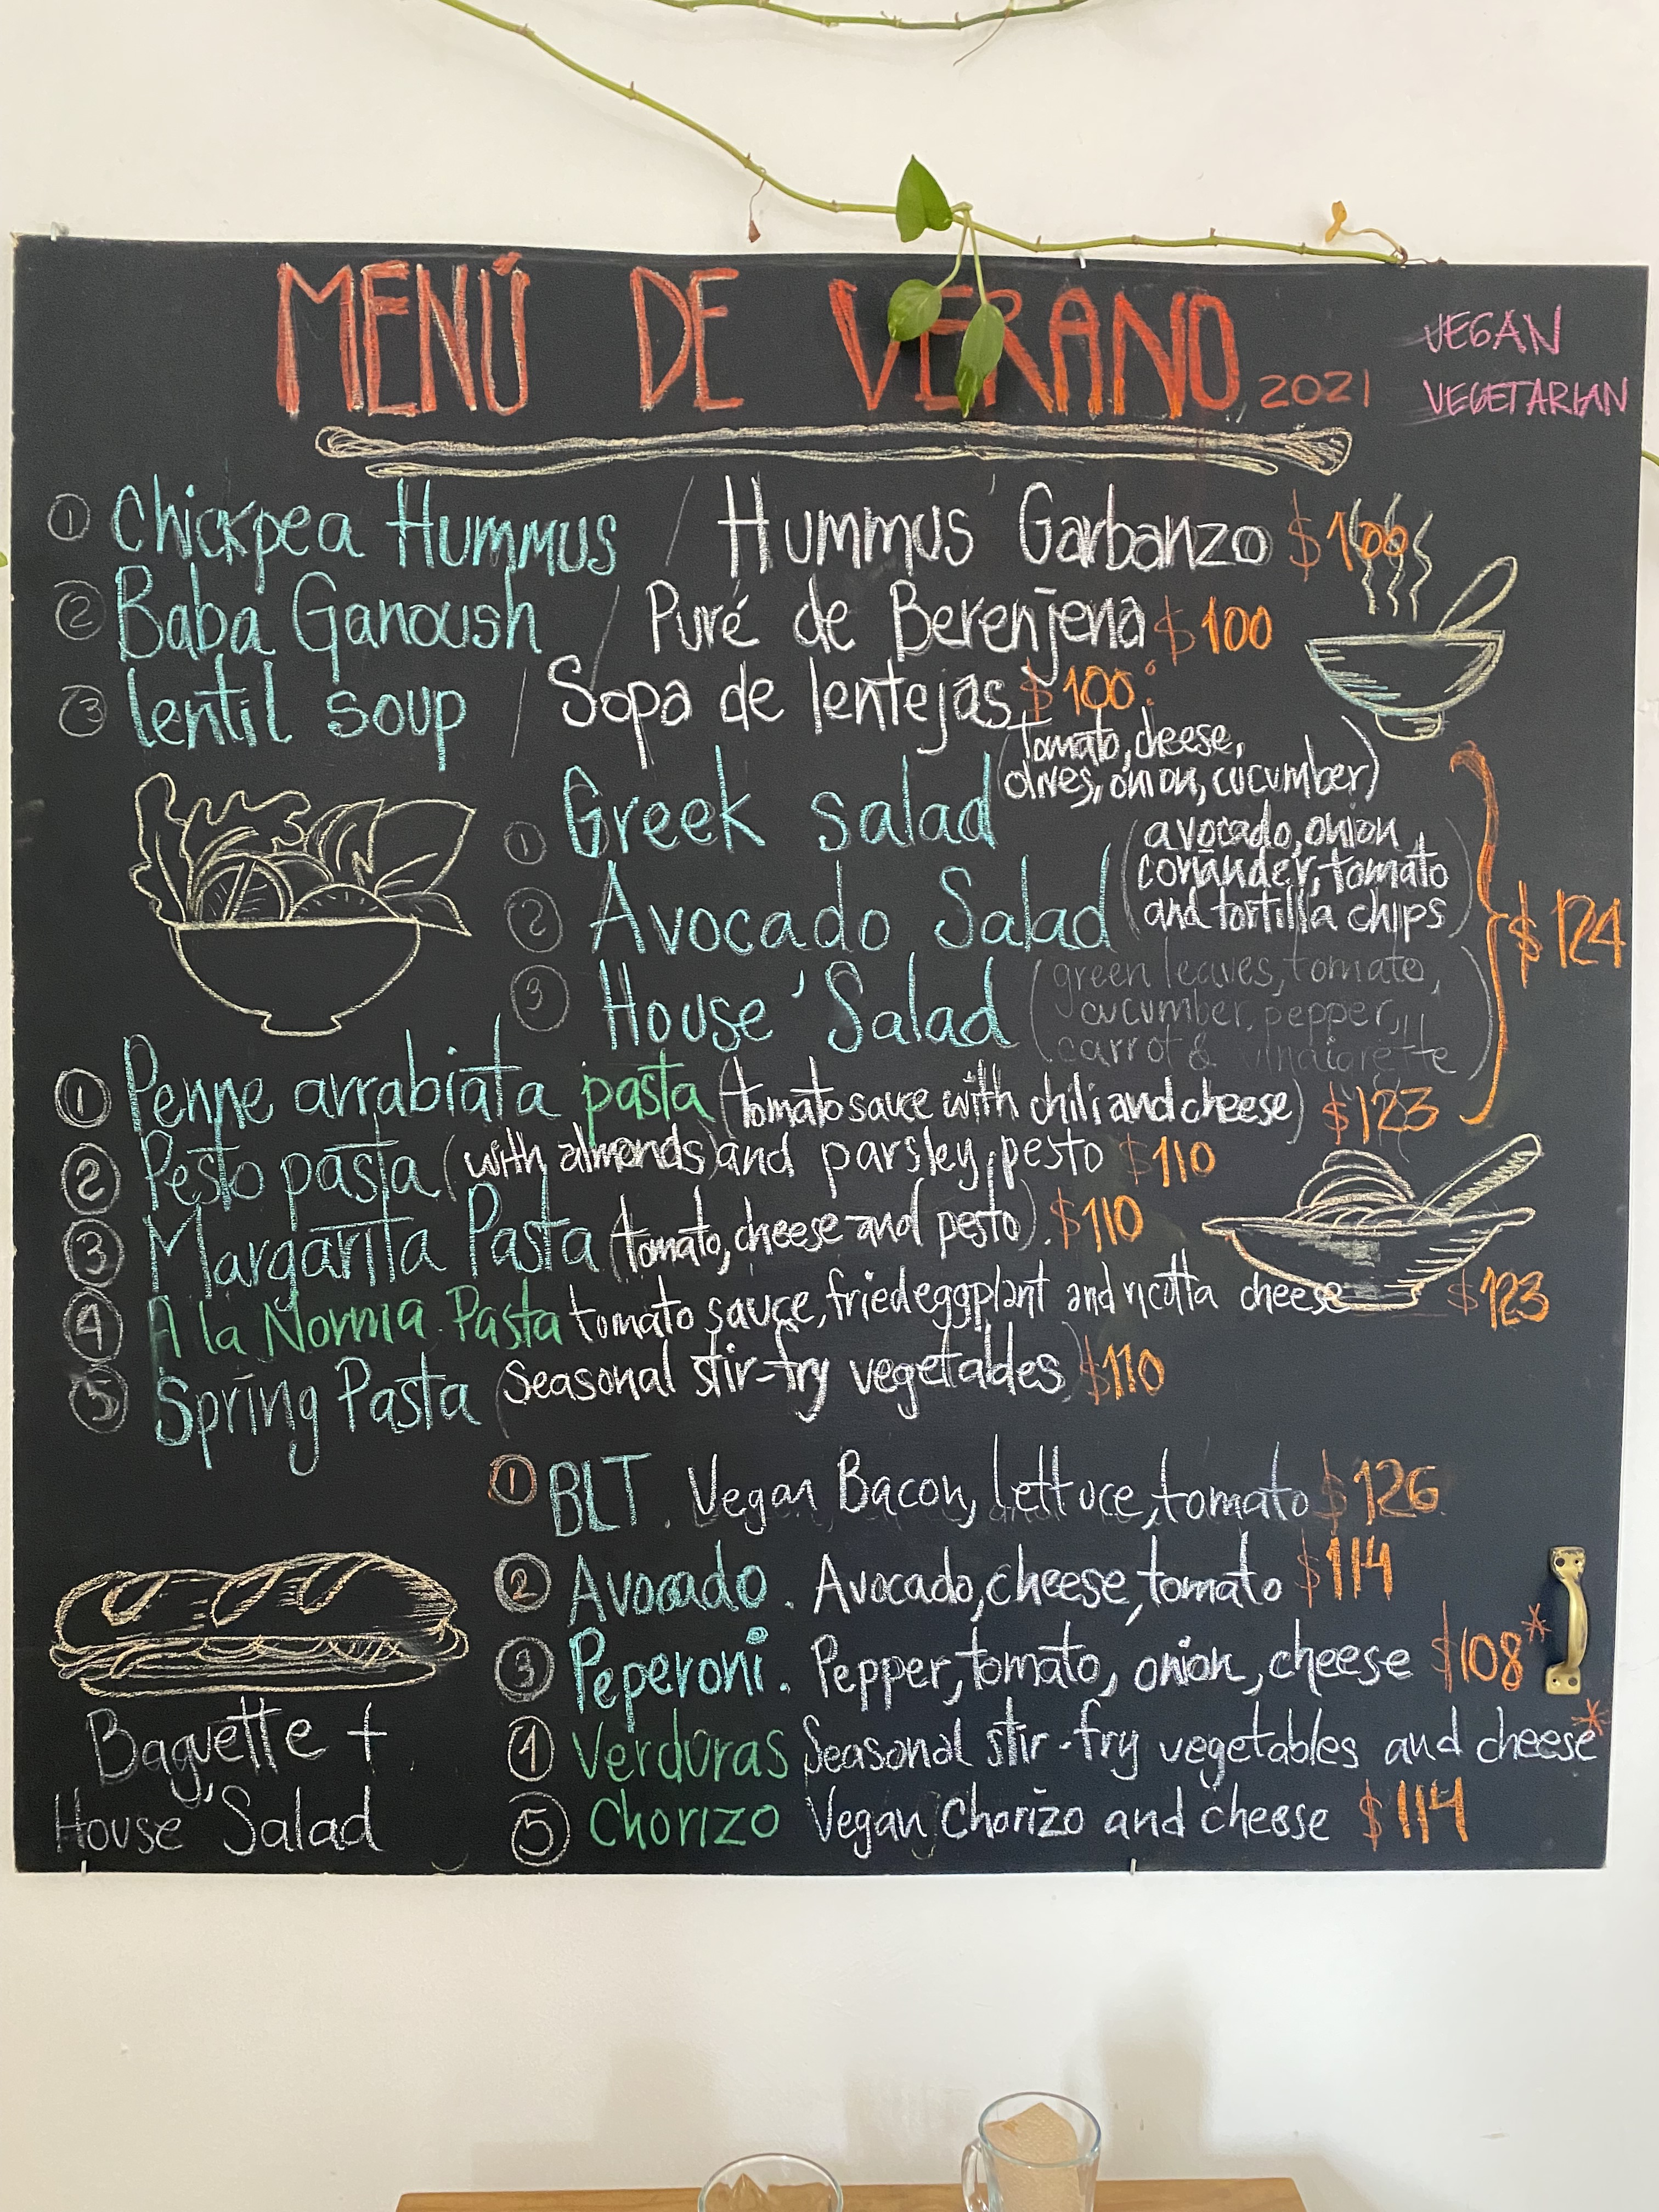 MENÚ DE VERANO 2021
VEGAN
VEGETARIAN
① Chickpea Hummus / Hummus Garbanzo $100
② Baba Ganoush / Puré de Berenjena $100
③ lentil soup / Sopa de lentejas $100
① Greek salad (tomato, cheese,
olives, onion, cucumber)
② Avocado Salad (avocado, onion,
coriander, tomato
and tortilla chips)
$124
③ House' Salad (green leaves, tomato,
cucumber, pepper,
carrot &
① Penne arrabiata pasta (tomato sauce with chili and cheese) $123
② Pesto pasta (with almonds) and parsley, pesto $110
③ Margarita Pasta (tomato, cheese and pesto). $110
④ A la Norma Pasta tomato sauce, fried eggplant and ricotta cheese $123
⑤ Spring Pasta (Seasonal stir-fry vegetables) $110
① BLT. Vegan Bacon, lettuce, tomato $126
② Avocado. Avocado, cheese, tomato $114
③ Peperoni. Pepper, tomato, onion, cheese $108*
④ Verduras Seasonal stir-fry vegetables and cheese*
⑤ Chorizo Vegan Chorizo and cheese $114
Baguette +
House' Salad